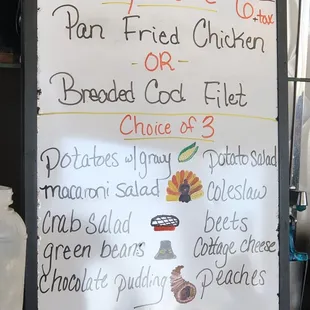 6 +tax
Pan Fried Chicken
- OR -
Breaded Cod Filet
Choice of 3
Potatoes w/gravy potato salad
macaroni salad coleslaw
crab salad beets
green beans cottage cheese
chocolate pudding peaches